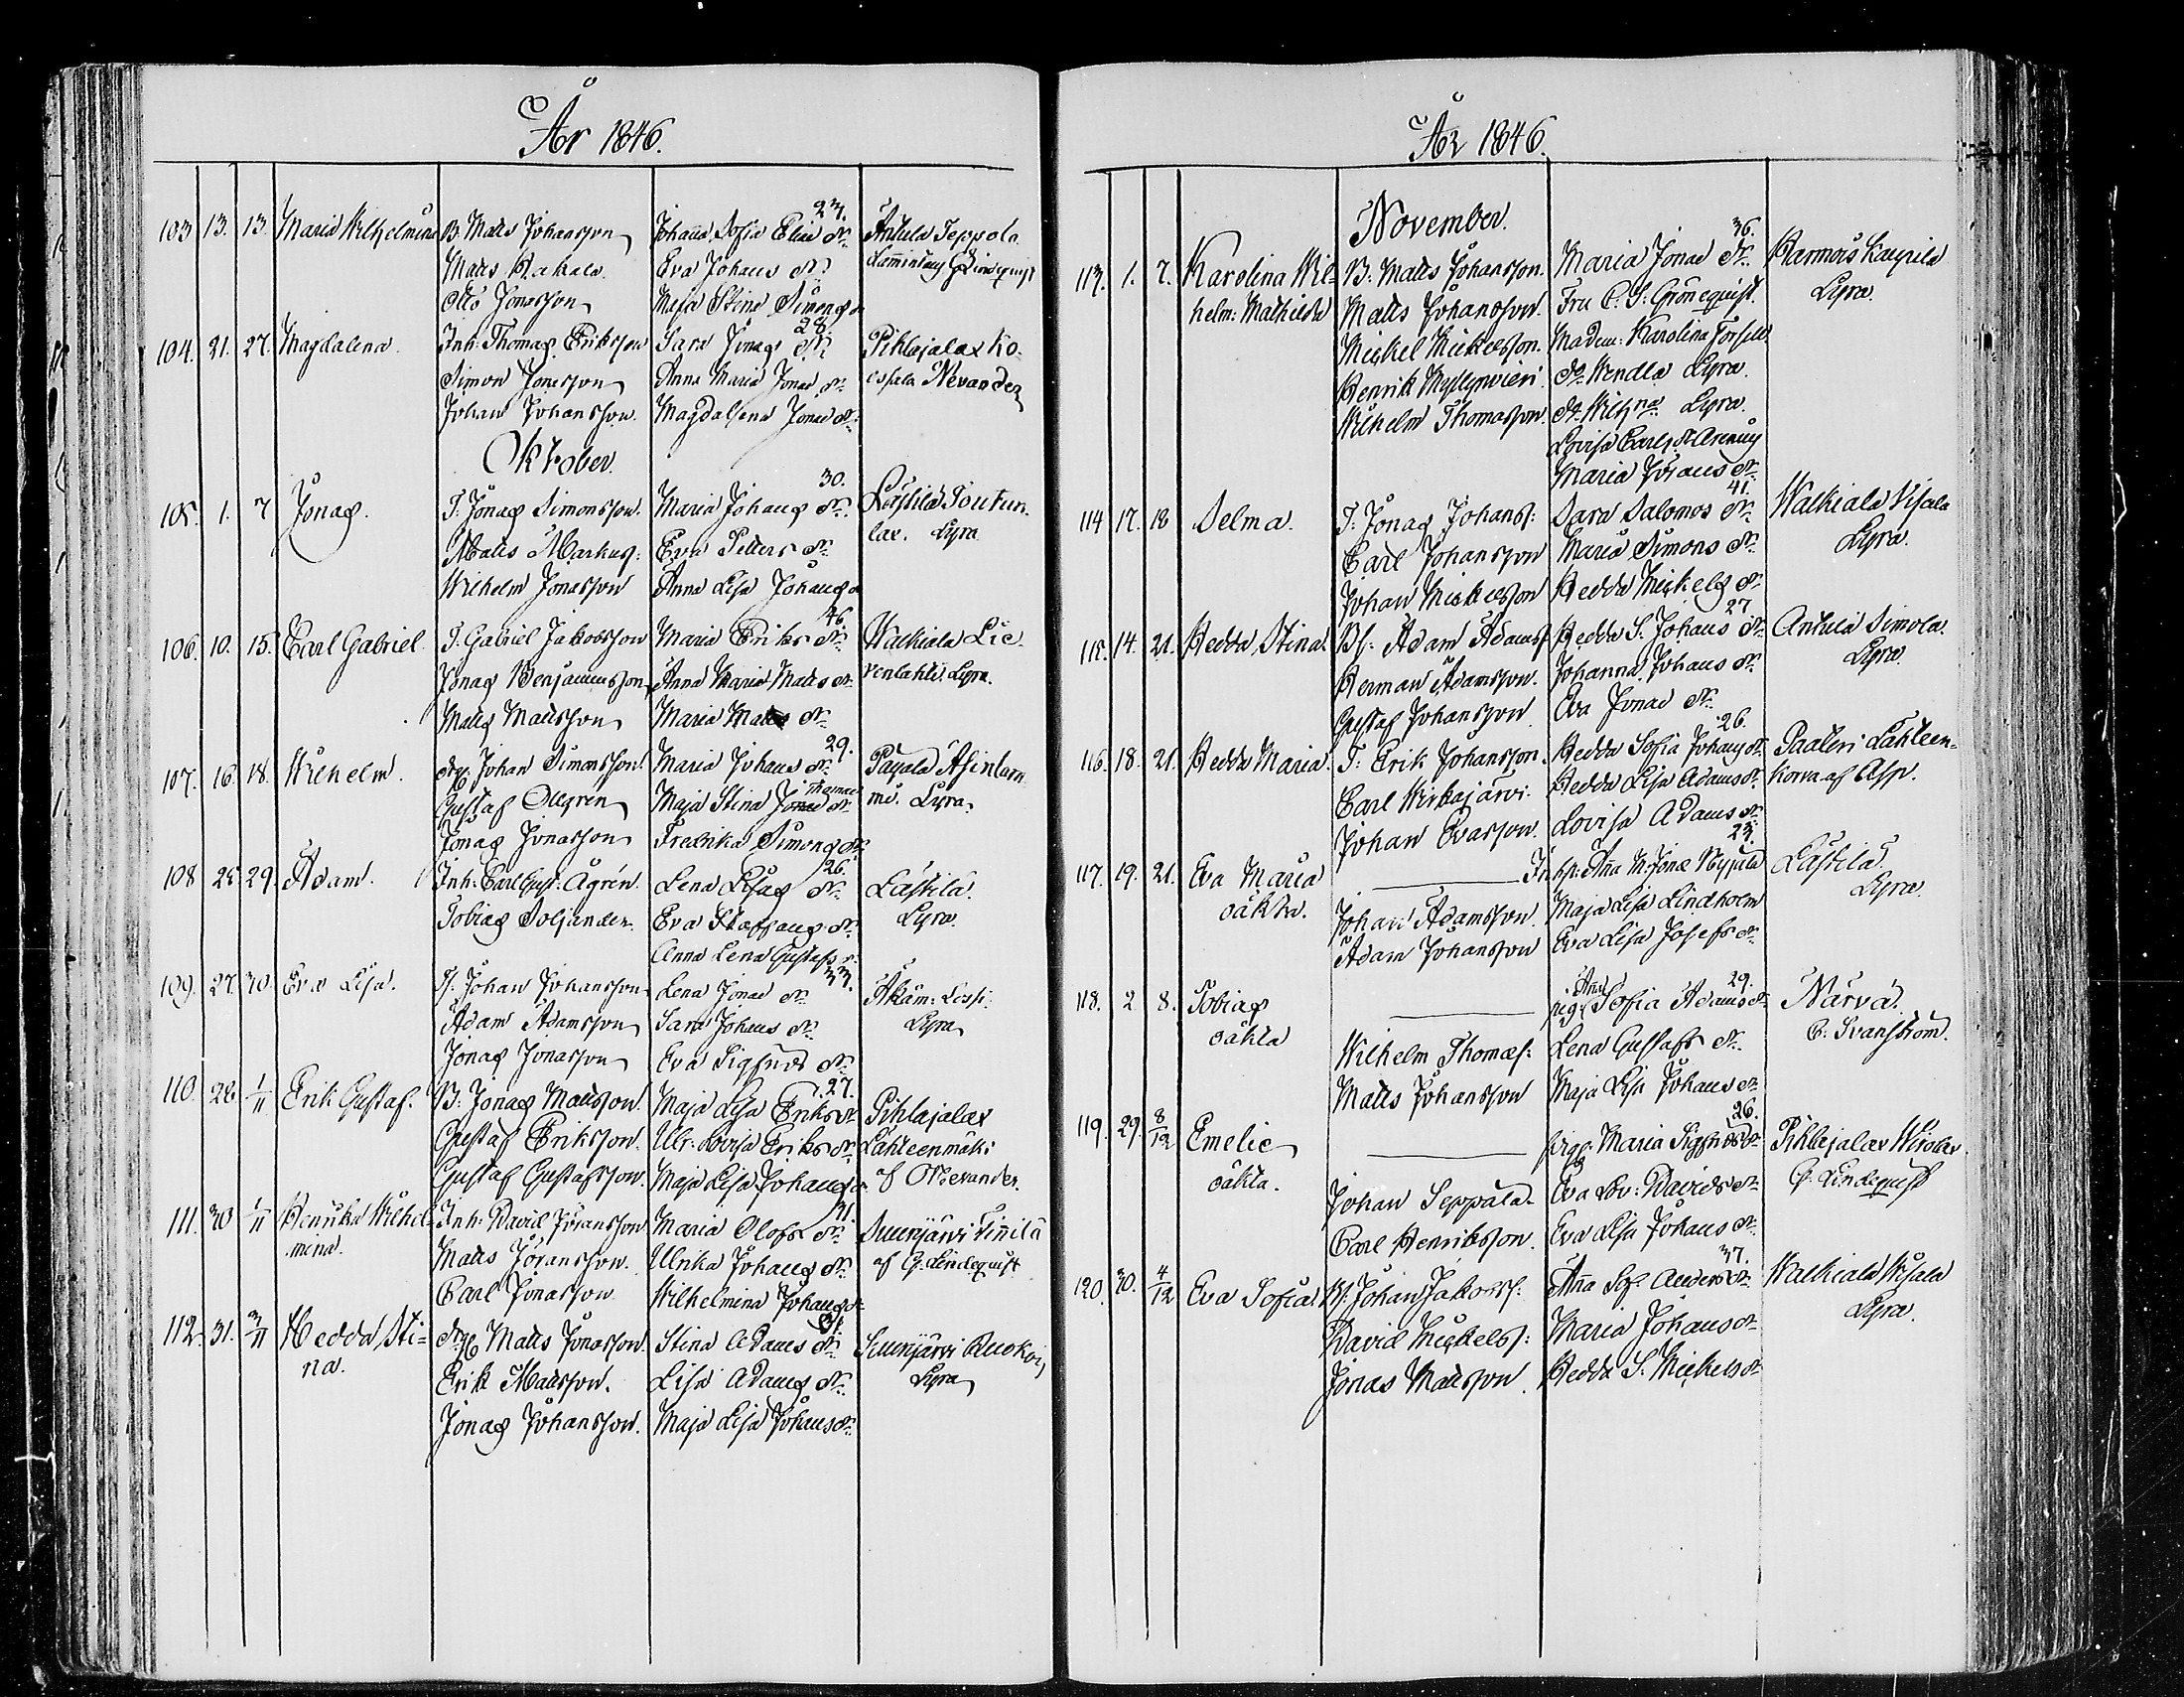 År 1846.
23.
103 13. 13. Maria Wilhelmina B. Matts Johansson Johanna Sofia Elias dr. Anttila Seppola
Matts Eva Johans dr.
Otto Jonasson Maja Stina Simons dr
28.
104. 21. 27. Magdalena. Inh: Thomas Eriksson Sara Jonas dr. Pihlajalax Ko-
Simon Jonasson Anna Maria Jonas dr. Nevander
Johan Johansson. Magdalena Jonas dr.
Oktober.
30.
105. 1. 7 Jonas. T. Jonas Simonsson. Maria Johans dr. Lästilä Toutun-
Matts Markuss: Eva Petters dr. lax. Lyra
Wilhelm Jonasson Anna Lisa Johans dr
46.
106. 10. 15. Carl Gabriel. T. Gabriel Jakobsson Maria Eriks dr. Walkiala Lie-
Jonas Benjaminsson Anna Maria Matts dr. venlahti. Lyra.
Matts Mattsson Maria Matts dr.
29.
107. 16. 18. Wilhelm. drg. Johan Simonsson. Maria Johans dr.
Thomas
Gustaf Ollgren Maja Stina Jonas dr. mi. Lyra.
Jonas Jonasson Fredrika Simons dr.
26.
108 28 29. Adam. Inh. Carl Gust. Ågrén. Lena Lisas dr. Lästilä.
Tobias Soljander. Eva Staffans dr. Lyra.
Anna Lena Gustafs dr.
33.
109. 27. 30. Eva Lisa. Johan Johansson Lena Jonas dr.
Adam Adamsson Sara Johans dr. Lyra
Jonas Jonasson Eva Sigfrids dr.
27.
110. 28. 1/11 Erik Gustaf. B: Jonas Mattsson. Maja Lisa Eriks dr Pihlajalax
Gustaf Eriksson. Ulr: Lovisa Eriks dr. Lähteenmäki
Gustaf Gustafsson. Maja Lisa Johans dr. af Nevander.
31.
111. 30 1/11 Henrika Wilhel- Inh: David Göransson Maria Olofs dr. Suurijärvi Tinnilä
mina. Matts Göransson. Ulrika Johans dr. af G. Lindequist
Carl Jonasson Wilhelmina Johans dr.
31.
112. 31. 3/11 Hedda Sti- drg Matts Jonasson. Stina Adams dr. Suurijärvi
na. Erik Mattsson. Lisa Adams dr. Lyra
Jonas Johansson. Maja Lisa Johans dr.
År 1846.
November.
36.
113. 1. 7. Karolina Wil- B: Matts Johansson. Maria Jonas dr. Harmois Kaupila
helm: Mathilda Matts Johansson. Fru C. S: Grönequist. Lyra.
Mickel Mickelsson. Madem: Karolina Forsell
Henrik Myllyniemi. do Wendla Lyra.
Wilhelm Thomasson. do Wilhna Lyra.
Lovisa Carls dr
Maria Görans dr.
41.
114 17. 18 Selma. T: Jonas Johanss: Sara Salomos dr. Walkiala Wisala
Carl Johansson Maria Simons dr. Lyra.
Johan Mickelsson Hedda Mickels dr.
27.
115. 14. 21. Hedda Stina. Adam Adamss. Hedda S. Johans dr. Anttila Simola.
Herman Adamsson. Johanna Johans dr. Lyra.
Gustaf Johansson Eva Jonas dr.
26.
116. 18. 21. Hedda Maria. T: Erik Johansson. Hedda Sofia Johans dr. Paateri Lähteen-
Carl Wirkajärvi. Hedda Lisa Adams dr. korva af Asp.
Johan Evasson. Lovisa Adams dr.
23.
117. 19. 21. Eva Maria Anna M: Jonæ Lästilä.
oäkta. Johan Adamsson. Maja Lisa Lindholm Lyra.
Adam Johansson Eva Lisa Josefs dr.
Anna 29.
118. 2 8. Tobias pig. Sofia Adams dr. Närvä.
oäkta Wilhelm Thomæs: Lena Gustafs dr. C. Svanström.
Matts Johansson Maja Lisa Johans dr.
26.
119. 29. 8/12 Emelie pig. Maria Sigfrids dr. Pihlajalax
oäkta. Johan Seppälä. Eva Lov: Davids dr. G. Lindequist
Carl Henriksson. Eva Lisa Johans dr.
37.
120. 30. 4/12 Eva Sofia. Johan Jakobss: Anna Sof. Anders dr. Walkiala Wisala
David Mickelss: Maria Johans dr. Lyra.
Jonas Mattsson. Hedda S. Mickels dr